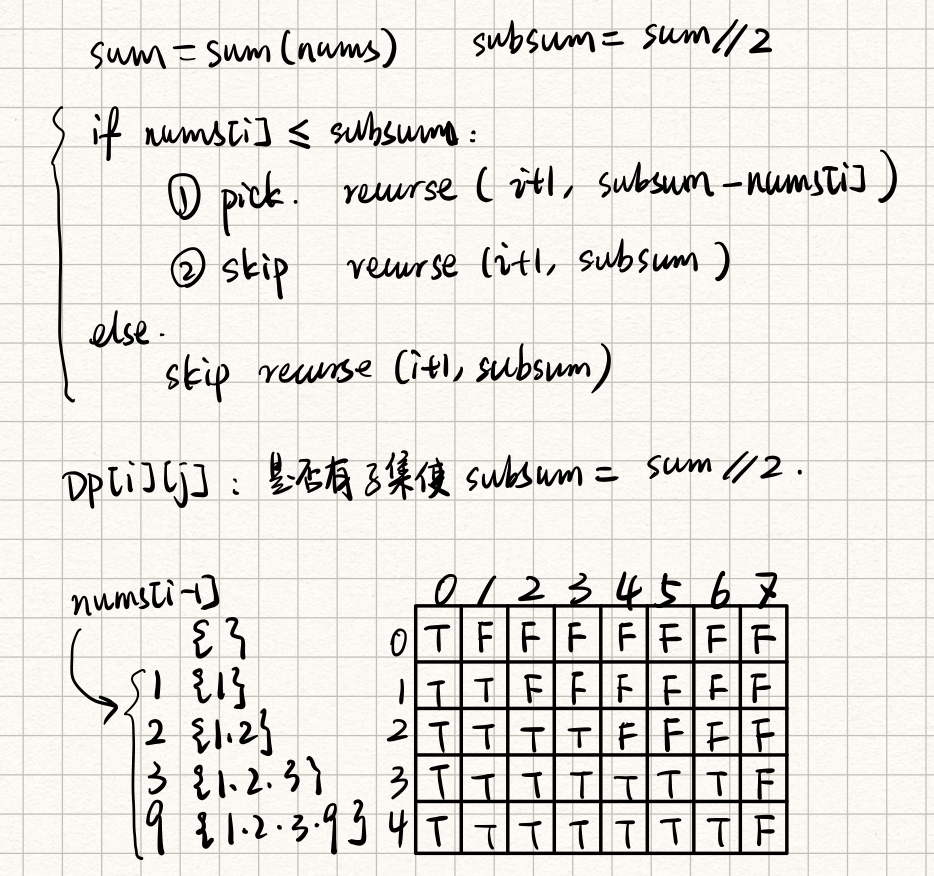 sum = sum (nums) subsum = sum // 2
if nums[i] ≤ subsum :
① pick. recurse ( i+1, subsum - nums[i] )
② skip recurse (i+1, subsum )
else.
skip recurse (i+1, subsum)
DP[i][j] : 是否有子集使 subsum = sum // 2 .
nums[i-1]
0 1 2 3 4 5 6 7
{ } 0 T F F F F F F F
1 {1} 1 T T F F F F F F
2 {1.2} 2 T T T T F F F F
3 {1.2.3} 3 T T T T T T T F
9 {1.2.3.9} 4 T T T T T T T F